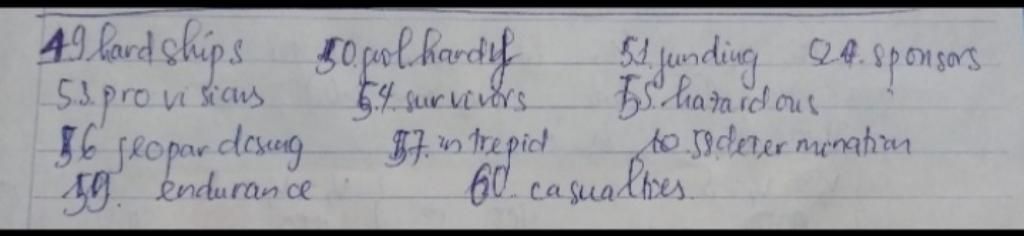 49 hardships 50. foolhardy 51. funding 52. sponsors
53. provisions 54. survivors 55. hazardous
56 jeopardising 57. intrepid 58. determination
59. endurance 60. casualties